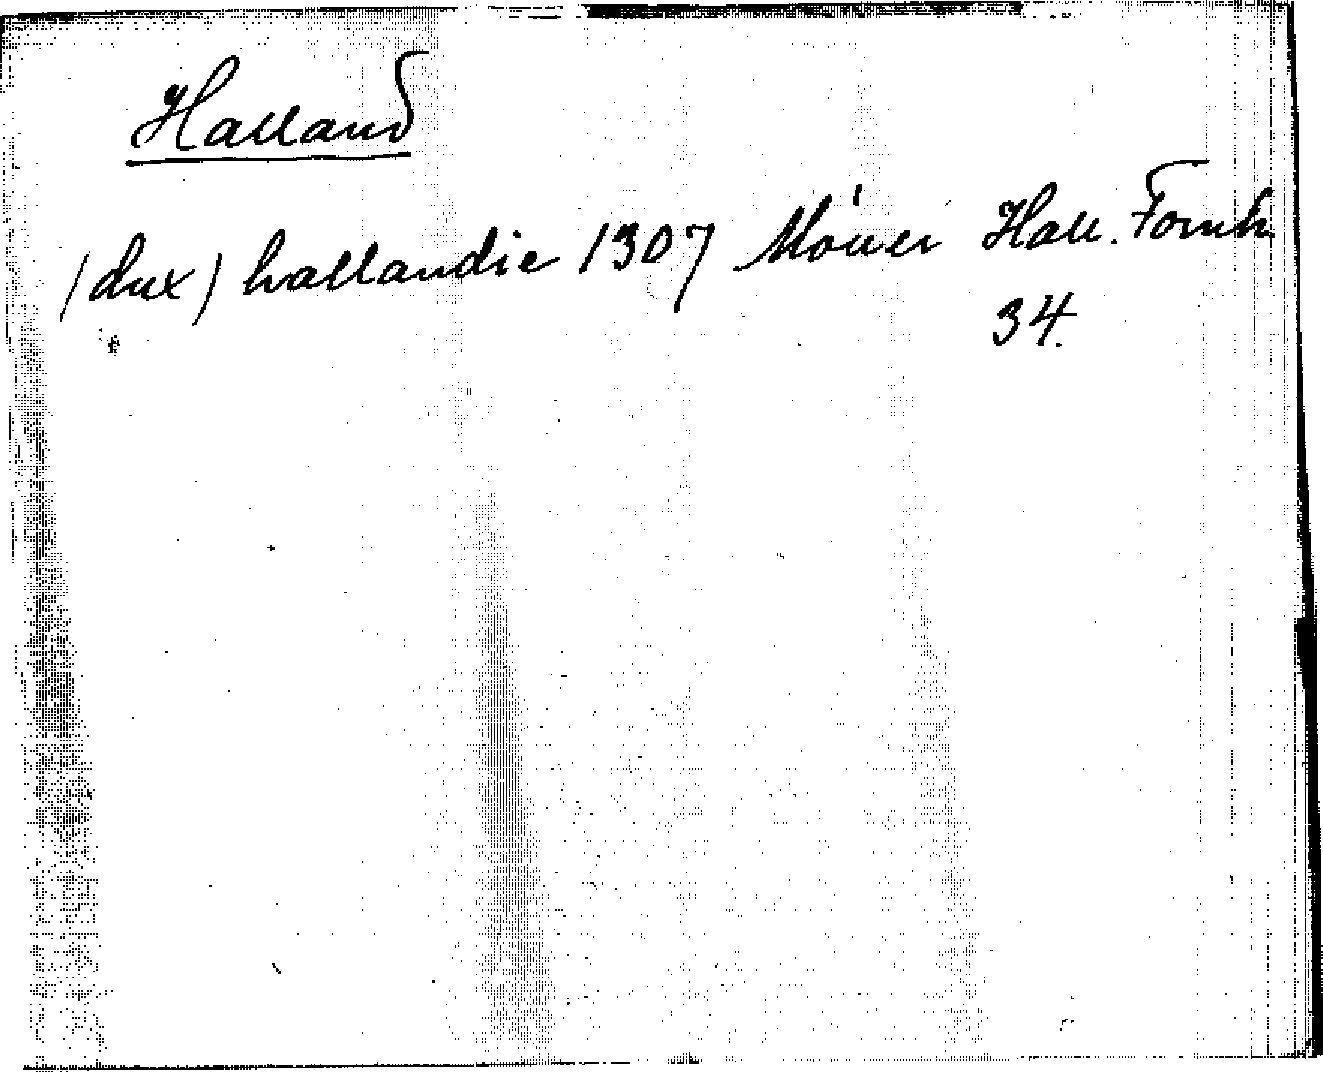 Halland
(dux) hallandie 1307 Möller Hall. Fornh.
34.